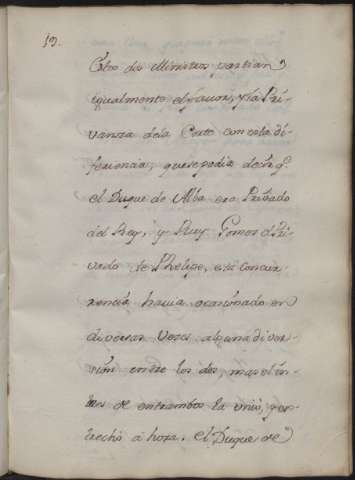 19.
Estos dos Ministros partian
igualmente el favor, y la Pri-
vanza dela Corte con sola di-
ferencia, que se podia decir q.
el Duque de Alba era Pribado
del Rey, y Ruy Gomez el Pri-
vado de Phelipe, esta concur-
rencia havia ocasionado en
diversas Vezes alguna diver-
sion entre los dos, mas el in-
teres de entrambos la unió, y es-
trechó á hora, el Duque de